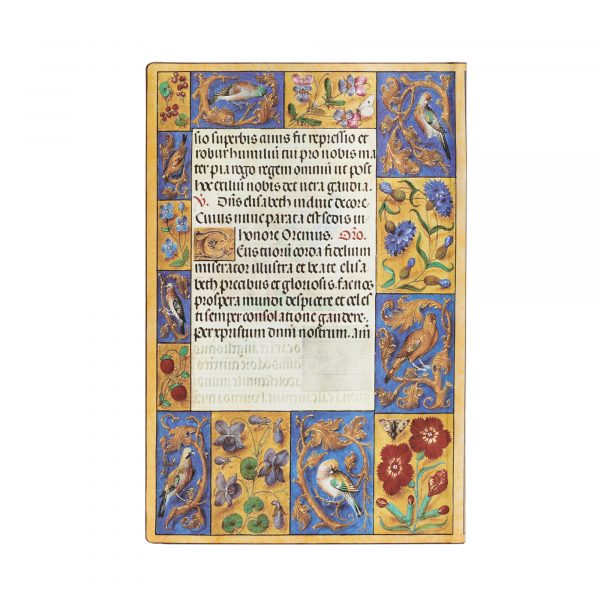 sio superbis cuius fit repressio et
robur humiliū tui pro nobis ma
ter pia rogo regem omniū ut post
hoc exiliū nobis det uera gaudia.
V. Dñs elisabeth induit decore.
Cuius nunc parata est sedis in
honore Oremus. Oro.
Deus tuorū corda fidelium
miserator illustra et beate elisa
beth precibus et gloriosis. fac nos
prospera mundi despicere et celes
ti semper consolatione gaudere.
Per xpristum dnm̄ nostrum. am̄